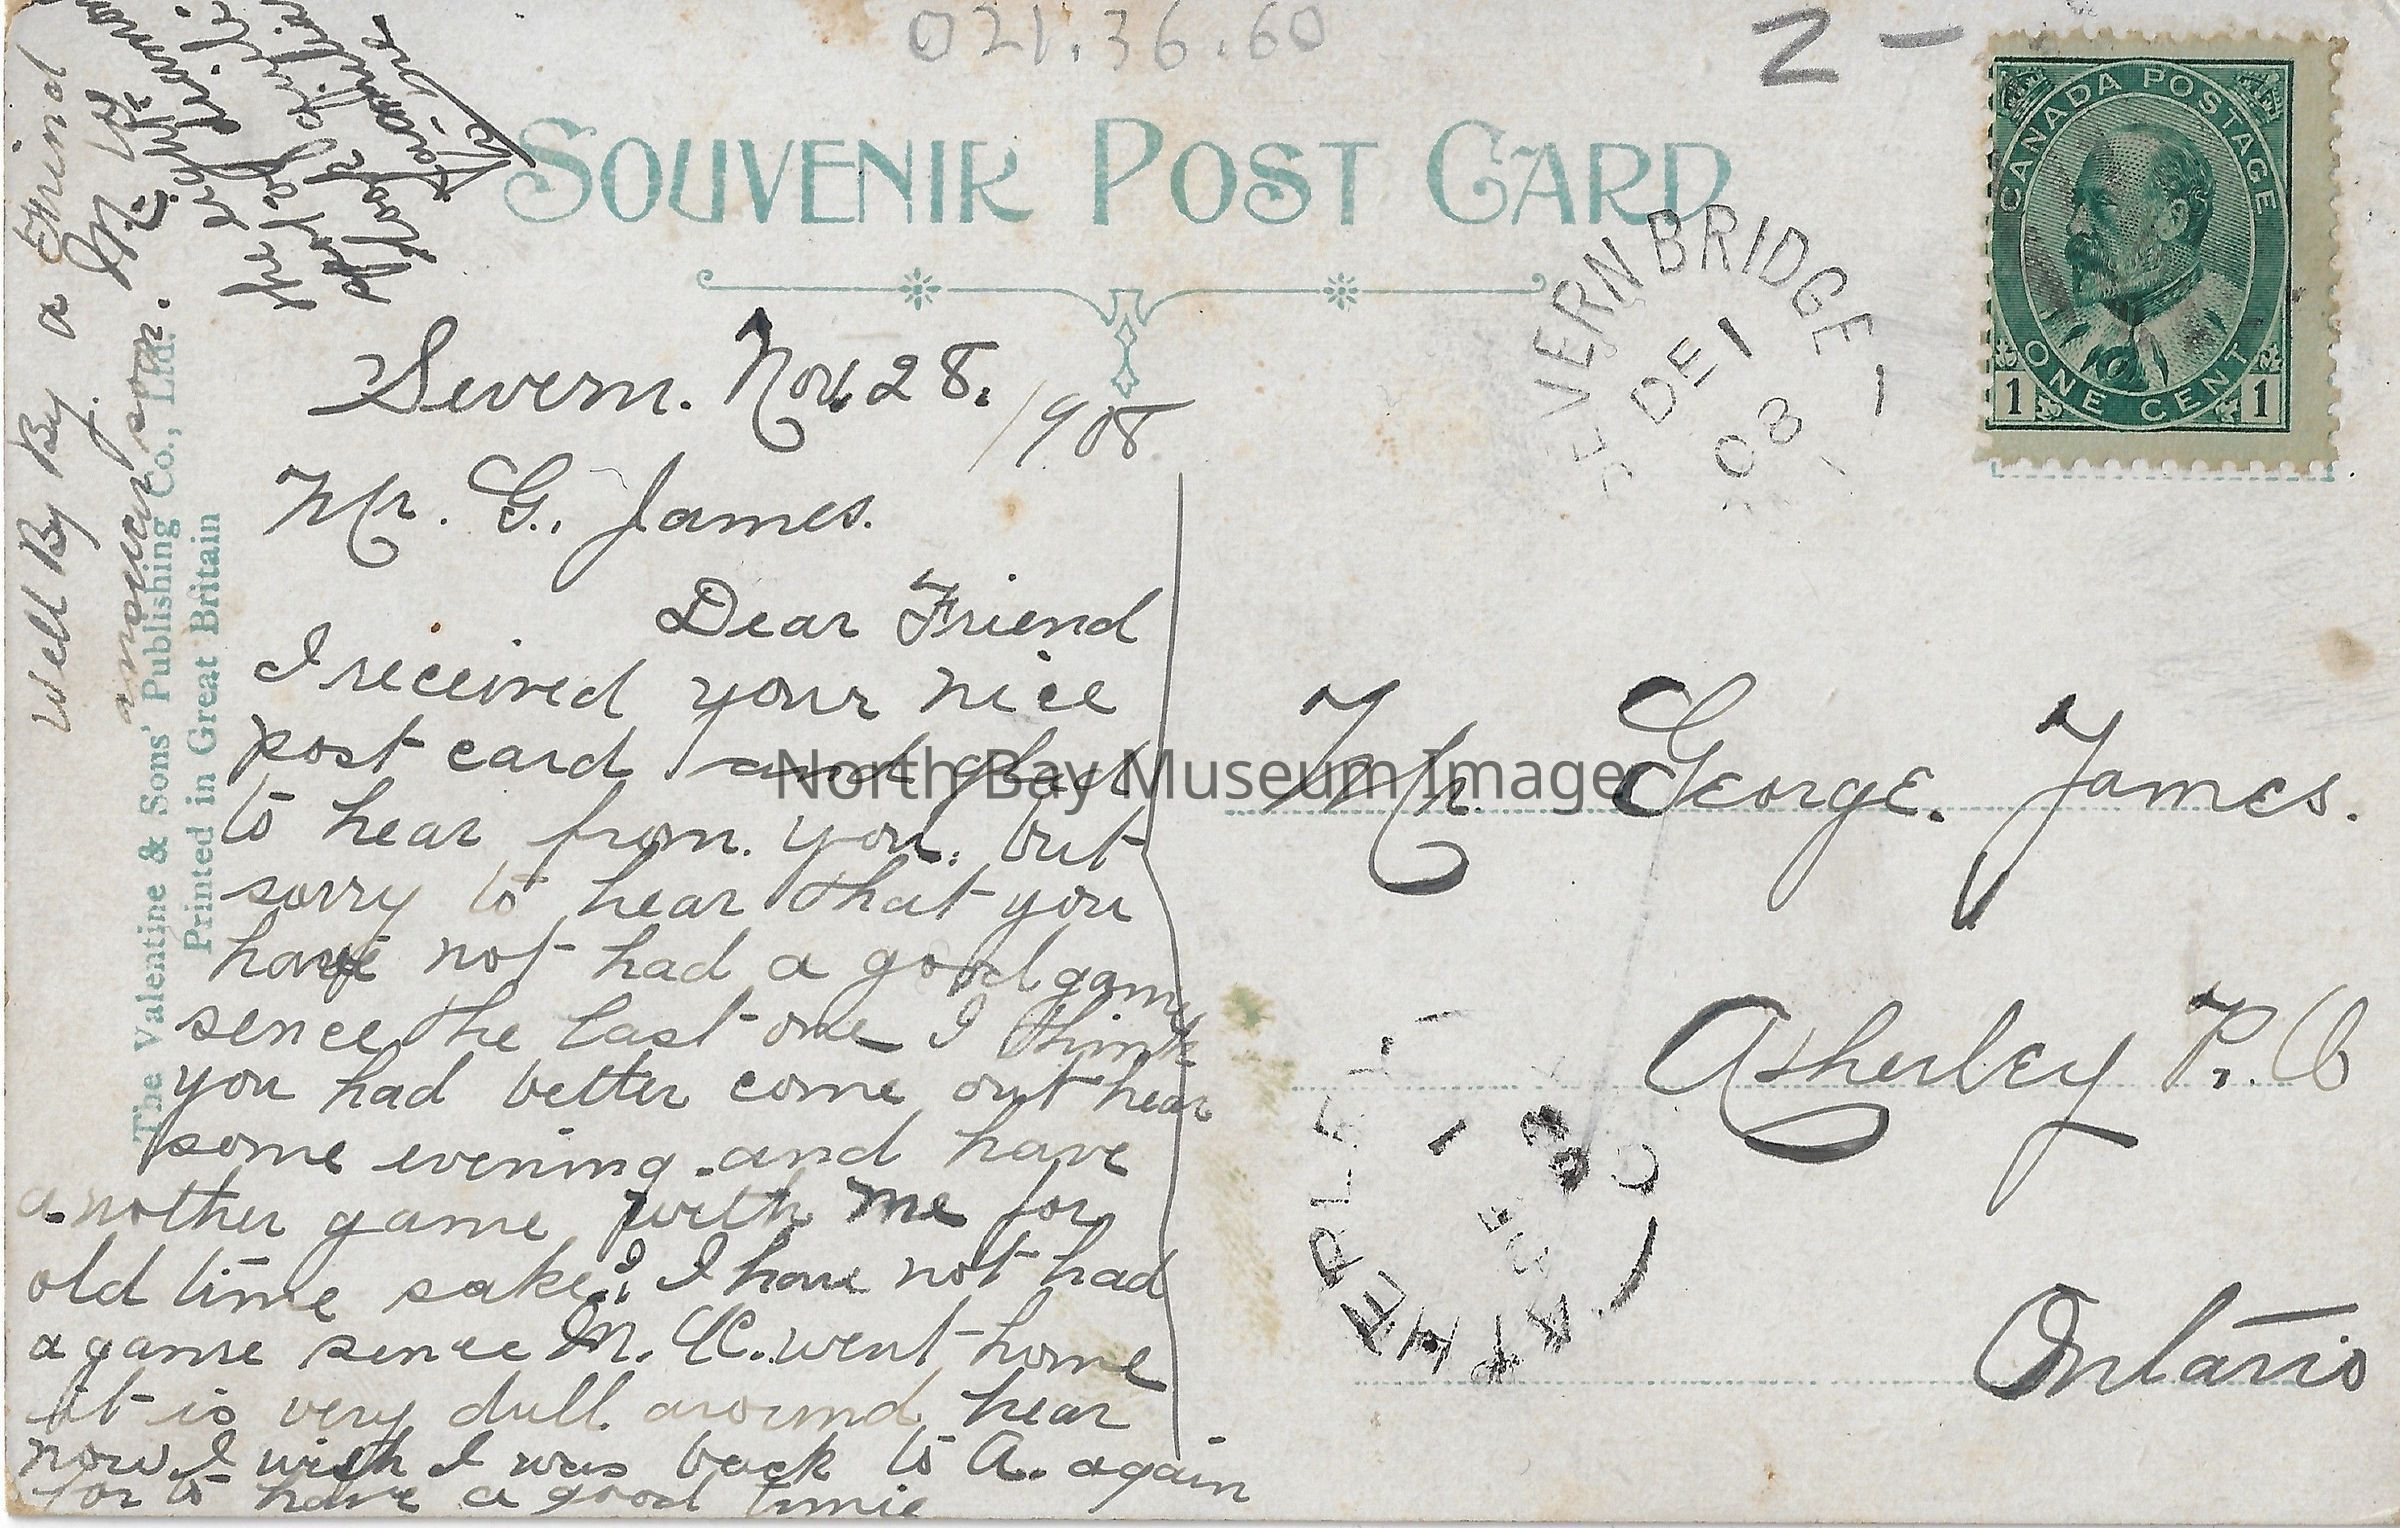 021.36.60
2 -
SOUVENIR POST CARD
CANADA POSTAGE
ONE CENT
1 1
SEVERN BRIDGE
DE 1
08
Severn. Nov. 28. 1908
Mr. G. James.
Dear Friend
I received your nice
post card and glad
to hear from you. but
sorry to hear that you
have not had a good game
sence the last one I think
you had better come out hear
some evening. and have
another game with me for
old time sake. I have not had
a game sence M. C. went home
it is very dull around hear
now I wish I was back to A. again
for to have a good time
Well By By. a Friend
answer soon.
The Valentine & Sons' Publishing Co., Ltd.
Printed in Great Britain
North Bay Museum Image
Mr. George. James.
Atherley P. O
Ontario
ATHERLEY
DE 1